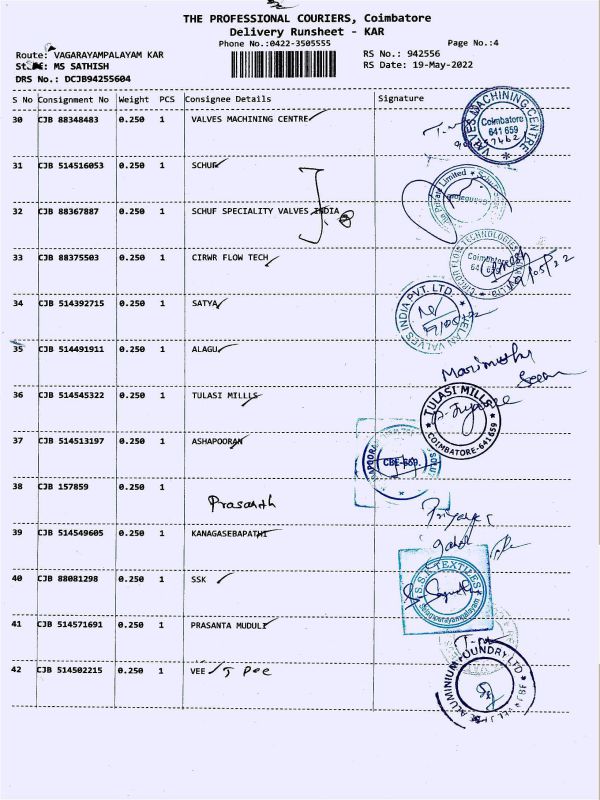 THE PROFESSIONAL COURIERS, Coimbatore
Delivery Runsheet - KAR
Phone No.:0422-3505555
Page No.:4
Route: VAGARAYAMPALAYAM KAR
RS No.: 942556
MS SATHISH
RS Date: 19-May-2022
DRS No.: DCJB94255604
S No Consignment No Weight PCS Consignee Details Signature
30 CJB 88348483 0.250 1 VALVES MACHINING CENTRE
VALVES MACHINING CENTRE
Coimbatore
641 659
31 CJB 514516053 0.250 1 SCHUF
32 CJB 88367887 0.250 1 SCHUF SPECIALITY VALVES INDIA
33 CJB 88375503 0.250 1 CIRWR FLOW TECH
34 CJB 514392715 0.250 1 SATYA
VALVES INDIA PVT. LTD.
35 CJB 514491911 0.250 1 ALAGU
Marimuthu
36 CJB 514545322 0.250 1 TULASI MILLLS
TULASI MILLS
COIMBATORE-641659
37 CJB 514513197 0.250 1 ASHAPOORAN
CBE-659
38 CJB 157859 0.250 1
Prasanth
39 CJB 514549605 0.250 1 KANAGASEBAPATHI
40 CJB 88081298 0.250 1 SSK
S.S.K TEXTILES
41 CJB 514571691 0.250 1 PRASANTA MUDULI
42 CJB 514502215 0.250 1 VEE
ALUMINIUM FOUNDRY LTD